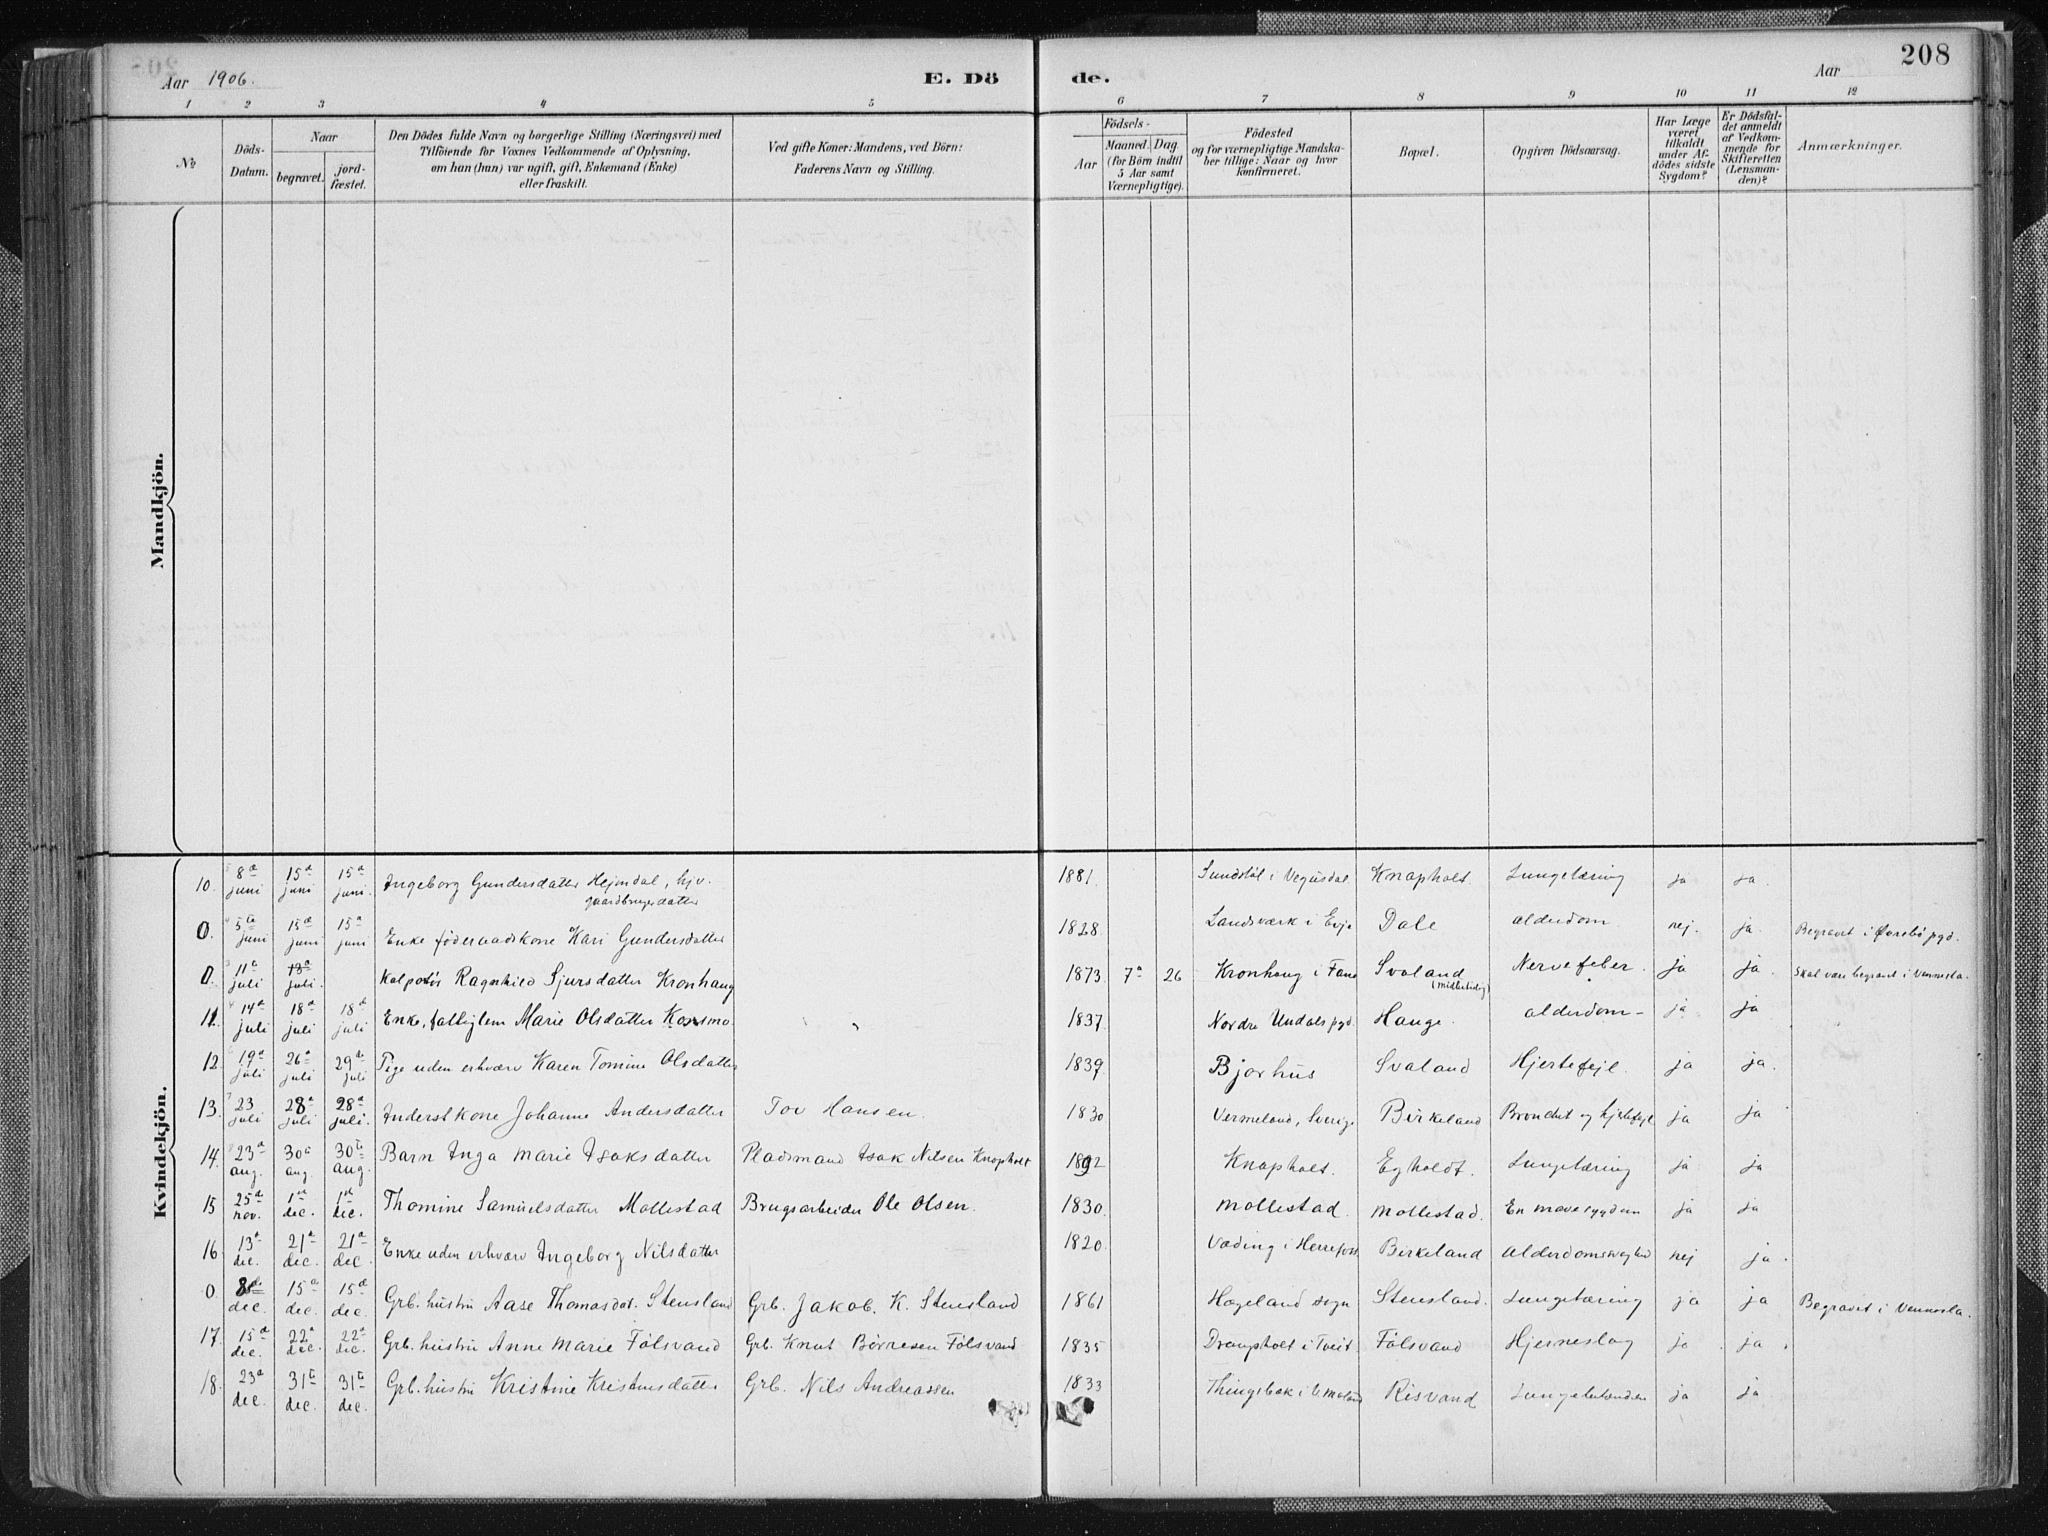 208
Aar 1906. E. Dö de. Aar
1 2 3 4 5 6 7 8 9 10 11 12
No
Döds-Datum.
Naar
begravet.
jord-fæstet.
Den Dödes fulde Navn og borgerlige Stilling (Næringsvei) med
Tilföiende for Voxnes Vedkommende af Oplysning,
om han (hun) var ugift, gift, Enkemand (Enke)
eller fraskilt.
Ved gifte Koner: Mandens, ved Börn:
Faderens Navn og Stilling.
Födsels-
Aar
Maaned. Dag
(for Börn indtil
5 Aar samt
Værnepligtige).
Födested
og for værnepligtige Mandska-
ber tillige: Naar og hvor
konfirmeret.
Bopæl.
Opgiven Dödsaarsag.
Har Læge
været
tilkaldt
under Af-
dödes sidste
Sygdom?
Er Dödsfal-
det anmeldt
af Vedkom-
mende for
Skifteretten
(Lensman-
den)?
Anmærkninger.
Mandkjön.
Kvindekjön.
10. 8de juni 15de juni 15de juni. Ingeborg Gundersdatter Hejmdal, hjv. gaardbrugerdatter 1881. Sundstöl i Vegusdal Knapholt. Lungetæring ja ja.
0. 5te juni 15de juni 15de juni Enke föderaadskone Kari Gundersdatter 1828. Landsværk i Evje Dale alderdom nej. ja. Begravet i Øvrebö pgd.
0. 11te juli 18de juli. Kolportös Ragnhild Sjursdatter Kronhaug 1873 7de 26 Kronhaug i Fane Svaland (midlertidig) Nervefeber. ja ja. Skal være begravet i Vennesla.
11. 14de juli 18de juli 18de juli Enke, fattiglem Marie Olsdatter Konsmo. 1837 Nordre Undals pgd. Hauge. alderdom ja ja
12. 19de juli 26de juli 29de juli Pige uden erhverv Karen Tomine Olsdatter 1839. Bjorhus Svaland Hjertefejl. ja ja.
13. 23 juli 28de juli 28de juli. Inderstkone Johanne Andersdatter Tov Hansen. 1830 Vermeland, Sverige Birkeland Bronchit og hjertefejl ja ja
14. 23de aug. 30de aug. 30te aug. Barn Inga Marie Isaksdatter Pladsmand Isak Nilsen Knapholt 1892 Knapholt. Egholdt. Lungetæring ja ja
15 25de nov. 1ste dec. 1ste dec. Thomine Samuelsdatter Mollestad Brugsarbeider Ole Olsen. 1830. Mollestad. Mollestad. En mavesygdom ja ja
16. 13de dec. 21de dec. 21de dec. Enke uden erhverv Ingeborg Nilsdatter 1820. Væding i Herrefoss Birkeland alderdomssvaghed nej ja.
0. 8de dec. 15de dec. 15de dec. Grb. hustru Aase Thomasdat. Stensland Grb. Jakob. K. Stensland 1861 Hægeland sogn Stensland. Lungetæring ja ja Begravet i Vennesla.
17. 15de dec. 22de dec. 22de dec. Grb. hustru Anne Marie Fölsvand Grb. Knut Börresen Fölsvand 1835 Drangsholt i Tveit. Fölsvand Hjerneslag ja ja.
18. 23de dec. 31te dec. 31te dec. Grb. hustru Kristine Kristensdatter Grb. Nils Andreassen 1833 Risvand Lungebetændelse ja ja